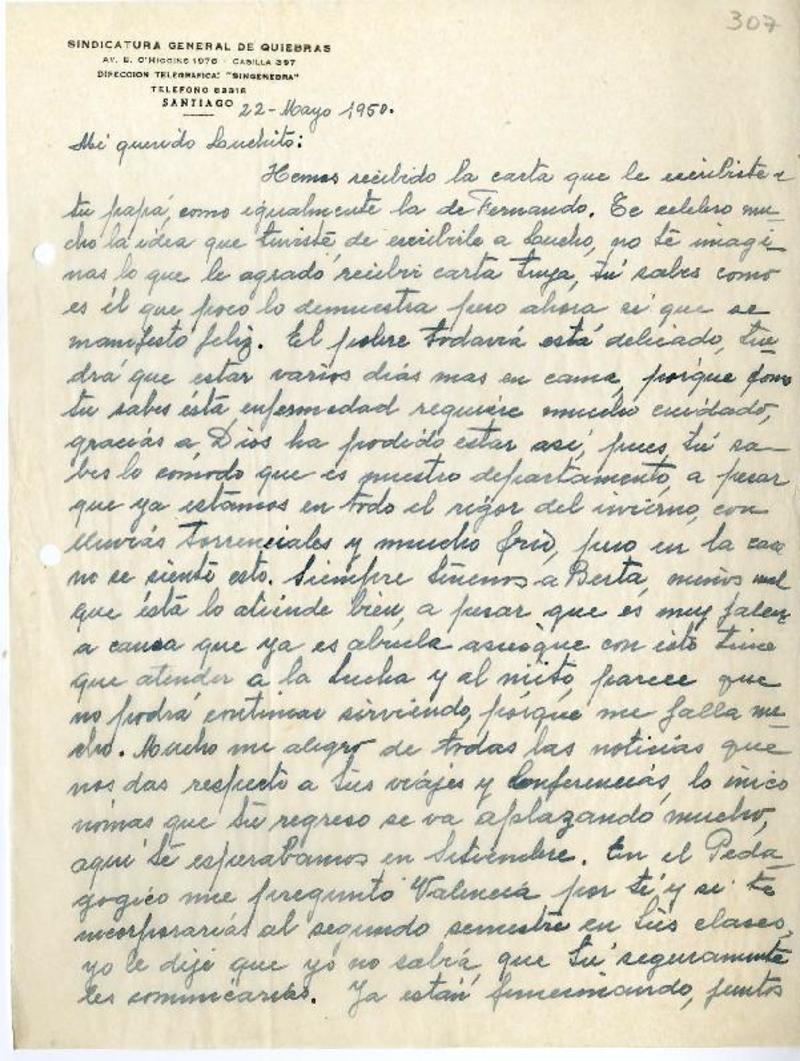 307
SINDICATURA GENERAL DE QUIEBRAS
AV. B. O'HIGGINS 1976 - CASILLA 397
DIRECCION TELEGRAFICA: "SINGENEBRA"
TELEFONO 83316
SANTIAGO 22-Mayo 1950.
Mi querido Luchito:
Hemos recibido la carta que le escribiste a
tu papá, como igualmente la de Fernando. Te celebro mu
cho la idea que tuviste de escribirle a Lucho, no te imagi
nas lo que le agradó recibir carta tuya, tú sabes como
es él que poco lo demuestra pero ahora si que se
manifestó feliz. El pobre todavia está delicado, ten
drá que estar varios dias mas en cama, porque como
tu sabes ésta enfermedad requiere mucho cuidado,
gracias a Dios ha podido estar asi, pues tú sa-
bes lo comodo que es nuestro departamento, a pesar
que ya estamos en todo el rigor del invierno, con
lluvias torrenciales y mucho frio, pero en la casa
no se siente esto. Siempre tenemos a Berta, menos mal
que ésta lo atiende bien, a pesar que es muy
a causa que ya es abuela asi es que con esto tiene
que atender a la Lucha y al nieto, parece que
no podrá continuar sirviendo, porque me falla mu
cho. Mucho me alegro de todas las noticias que
nos das respecto a tus viajes y Conferencias, lo único
nomas que tu regreso se va aplazando mucho,
aqui te esperabamos en Setiembre. En el Peda
gogico me preguntó Valencia por ti y si te
incorporarias al segundo semestre en tus clases,
yo le dije que yo no sabia, que tú seguramente
les comunicarias. Ya están funcionando, juntos